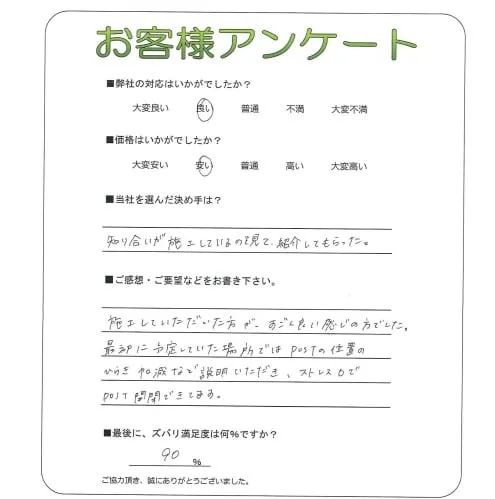 お客様アンケート
■弊社の対応はいかがでしたか？
大変良い 良い 普通 不満 大変不満
■価格はいかがでしたか？
大変安い 安い 普通 高い 大変高い
■当社を選んだ決め手は？
知り合いが施工しているのを見て、紹介してもらった。
■ご感想・ご要望などをお書き下さい。
施工していただいた方が、すごく良い感じの方でした。
最初に予定していた場所では POSTの位置の
ひらき加減など説明いただき、ストレス0で
POST開閉できてます。
■最後に、ズバリ満足度は何%ですか？
90 %
ご協力頂き、誠にありがとうございました。